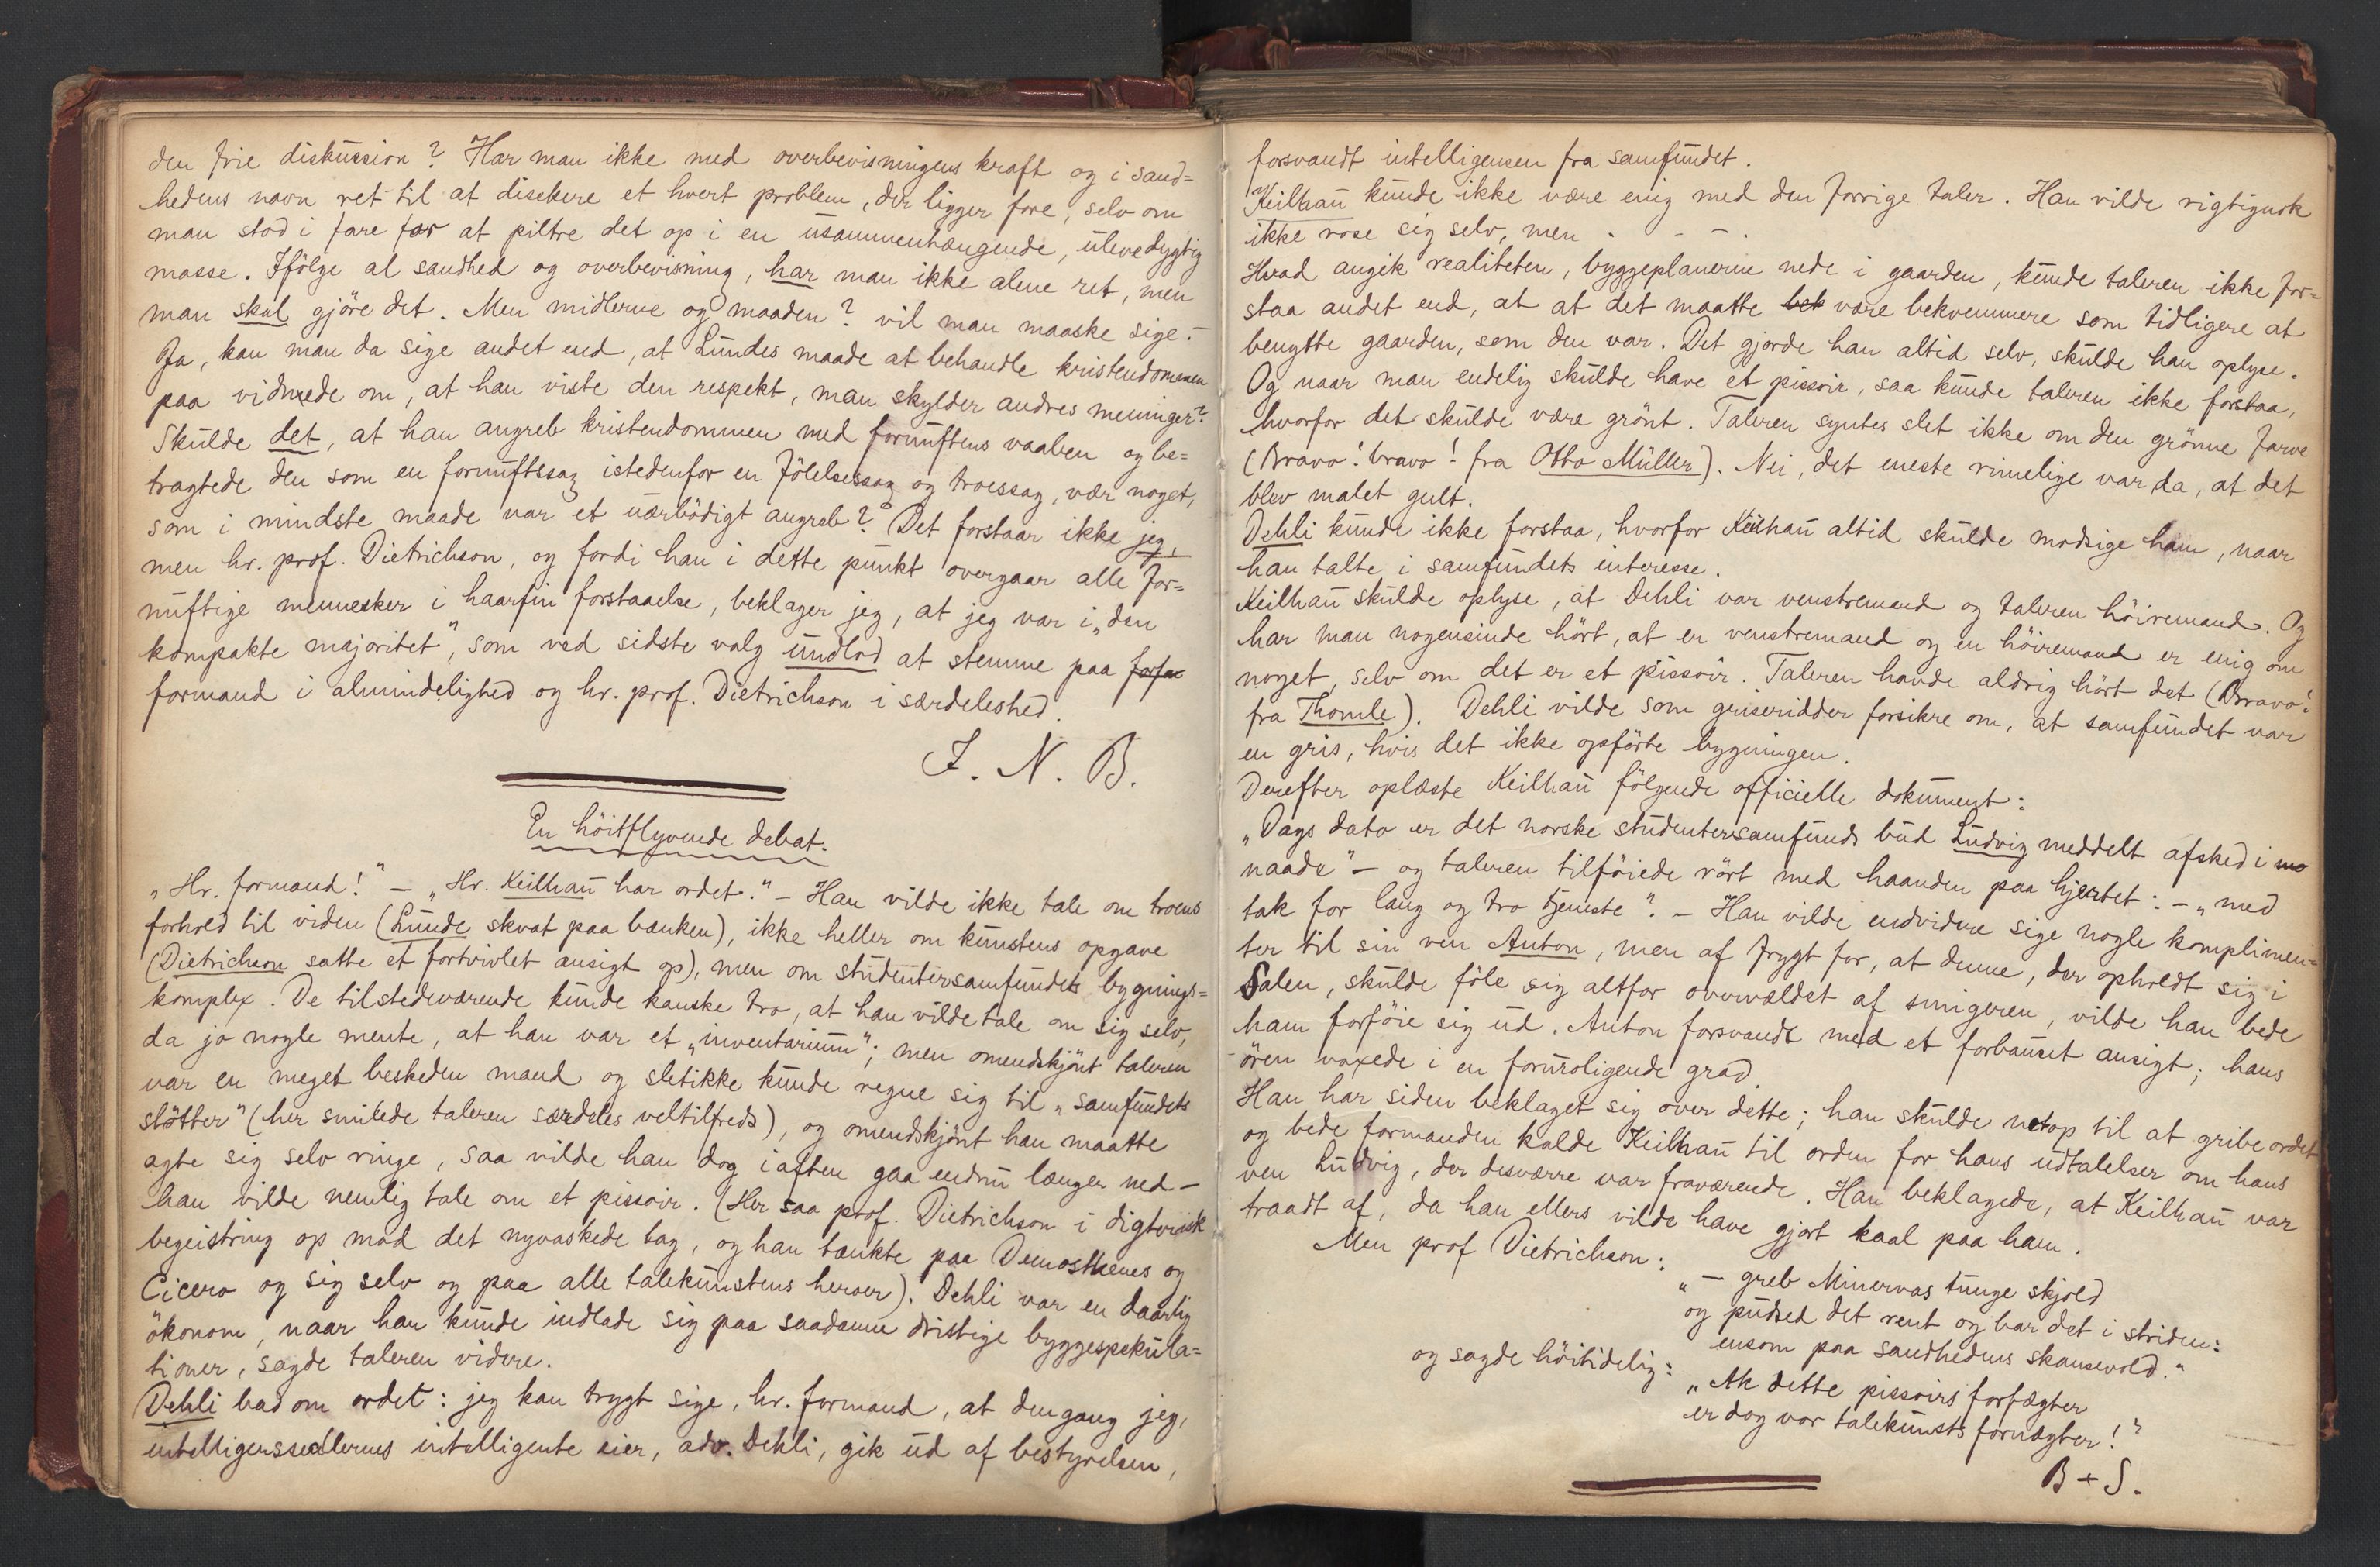 den frie diskussion? Har man ikke med overbevisningens kraft og i sand=
hedens navn ret til at disekere et hvert problem, der ligger fore, selv om
man stod i fare for at piltre det op i en usammenhængende, ulevedygtig
masse. Ifölge al sandhed og overbevisning, har man ikke alene ret, men
man skal gjöre det. Men midlerne og maaden? vil man maaske sige. –
Ja, kan man da sige andet end, at Lundes maade at behandle kristendommen
paa vidnede om, at han viste den respekt, man skylder andres meninger?
Skulde det, at han angreb kristendommen med fornuftens vaaben og be=
tragtede den som en fornuftssag istedenfor en fölelsessag og troessag, vær noget,
som i mindste maade var et uærbödigt angreb? Det forstaar ikke jeg,
men hr. prof. Dietrichson, og fordi han i dette punkt overgaar alle for=
nuftige mennesker i haarfin forstaaelse, beklager jeg, at jeg var i „den
kompakte majoritet", som ved sidste valg undlod at stemme paa forfa
formand i almindelighed og hr. prof. Dietrichson i særdeleshed.
I. N. B.
En höitflyvende debat.
„Hr. formand!" – „Hr. Keilhau har ordet." – Han vilde ikke tale om troens
forhold til viden (Lunde skvat paa bænken), ikke heller om kunstens opgave
(Dietrichson satte et fortvivlet ansigt op), men om studentersamfundets bygnings=
komplex. De tilstedeværende kunde kanske tro, at han vilde tale om sig selv,
da jo nogle mente, at han var et „inventarium"; men omendskjönt taleren
var en meget beskeden mand og sletikke kunde regne sig til „samfundets
stötter" (her smilede taleren særdeles veltilfreds), og omendskjönt han maatte
agte sig selv ringe, saa vilde han dog iaften gaa endnu længer ned –
han vilde nemlig tale om et pissoir. (Her saa prof. Dietrichson i digterisk
begeistring op mod det nyvaskede tag, og han tænkte paa Demosthenes og
Cicero og sig selv og paa alle talekunstens heroer). Dehli var en daarlig
ökonom, naar han kunde indlade sig paa saadanne dristige byggespekula=
tioner, sagde taleren videre.
Dehli bad om ordet: jeg kan trygt sige, hr. formand, at dengang jeg,
intelligenssedlernes intelligente eier, adv. Dehli, gik ud af bestyrelsen,
forsvandt intelligensen fra samfundet.
Keilhau kunde ikke være enig med den forrige taler. Han vilde rigtignok
ikke rose sig selv, men . – – .
Hvad angik realiteten, byggeplanerne nede i gaarden, kunde taleren ikke for=
staa andet end, at at det maatte bek være bekvemmere som tidligere at
benytte gaarden, som den var. Det gjorde han altid selv, skulde han oplyse.
Og naar man endelig skulde have et pissoir, saa kunde taleren ikke forstaa,
hvorfor det skulde være grönt. Taleren syntes slet ikke om den grönne farve
(Bravo! bravo! fra Otto Müller). Nei, det eneste rimelige var da, at det
blev malet gult.
Dehli kunde ikke forstaa, hvorfor Keilhau altid skulde modsige ham, naar
han talte i samfundets interesse.
Keilhau skulde oplyse, at Dehli var venstremand og taleren höiremand. Og
har man nogensinde hört, at en venstremand og en höiremand er enig om
noget, selv om det er et pissoir. Taleren havde aldrig hört det (Bravo!
fra Thomle). Dehli vilde som griseridder forsikre om, at samfundet var
en gris, hvis det ikke opförte bygningen.
Derefter oplæste Keilhau fölgende officielle dokument:
„Dags dato er det norske studentersamfunds bud Ludvig meddelt afsked i
naade" – og taleren tilföiede rört med haanden paa hjertet: – „med
tak for lang og tro tjeneste". – Han vilde endvidere sige nogle komplimen=
ter til sin ven Anton, men af frygt for, at denne, der opholdt sig i
Salen, skulde föle sig altfor overvældet af smigeren, vilde han bede
ham forföie sig ud. Anton forsvandt med et forbauset ansigt; hans
ören voxede i en foruroligende grad.
Han har siden beklaget sig over dette; han skulde netop til at gribe ordet
og bede formanden kalde Keilhau til orden for hans udtalelser om hans
ven Ludvig, der desværre var fraværende. Han beklagede, at Keilhau var
traadt af, da han ellers vilde have gjort kaal paa ham.
Men prof Dietrichson:
„– greb Minervas tunge skjold
og pudsed det rent og bar det i striden:
ensom paa sandhedens skansevold."
og sagde höitidelig:
„Ak dette pissoirs forfægter
er dog vor talekunsts fornægter!"
B + S.